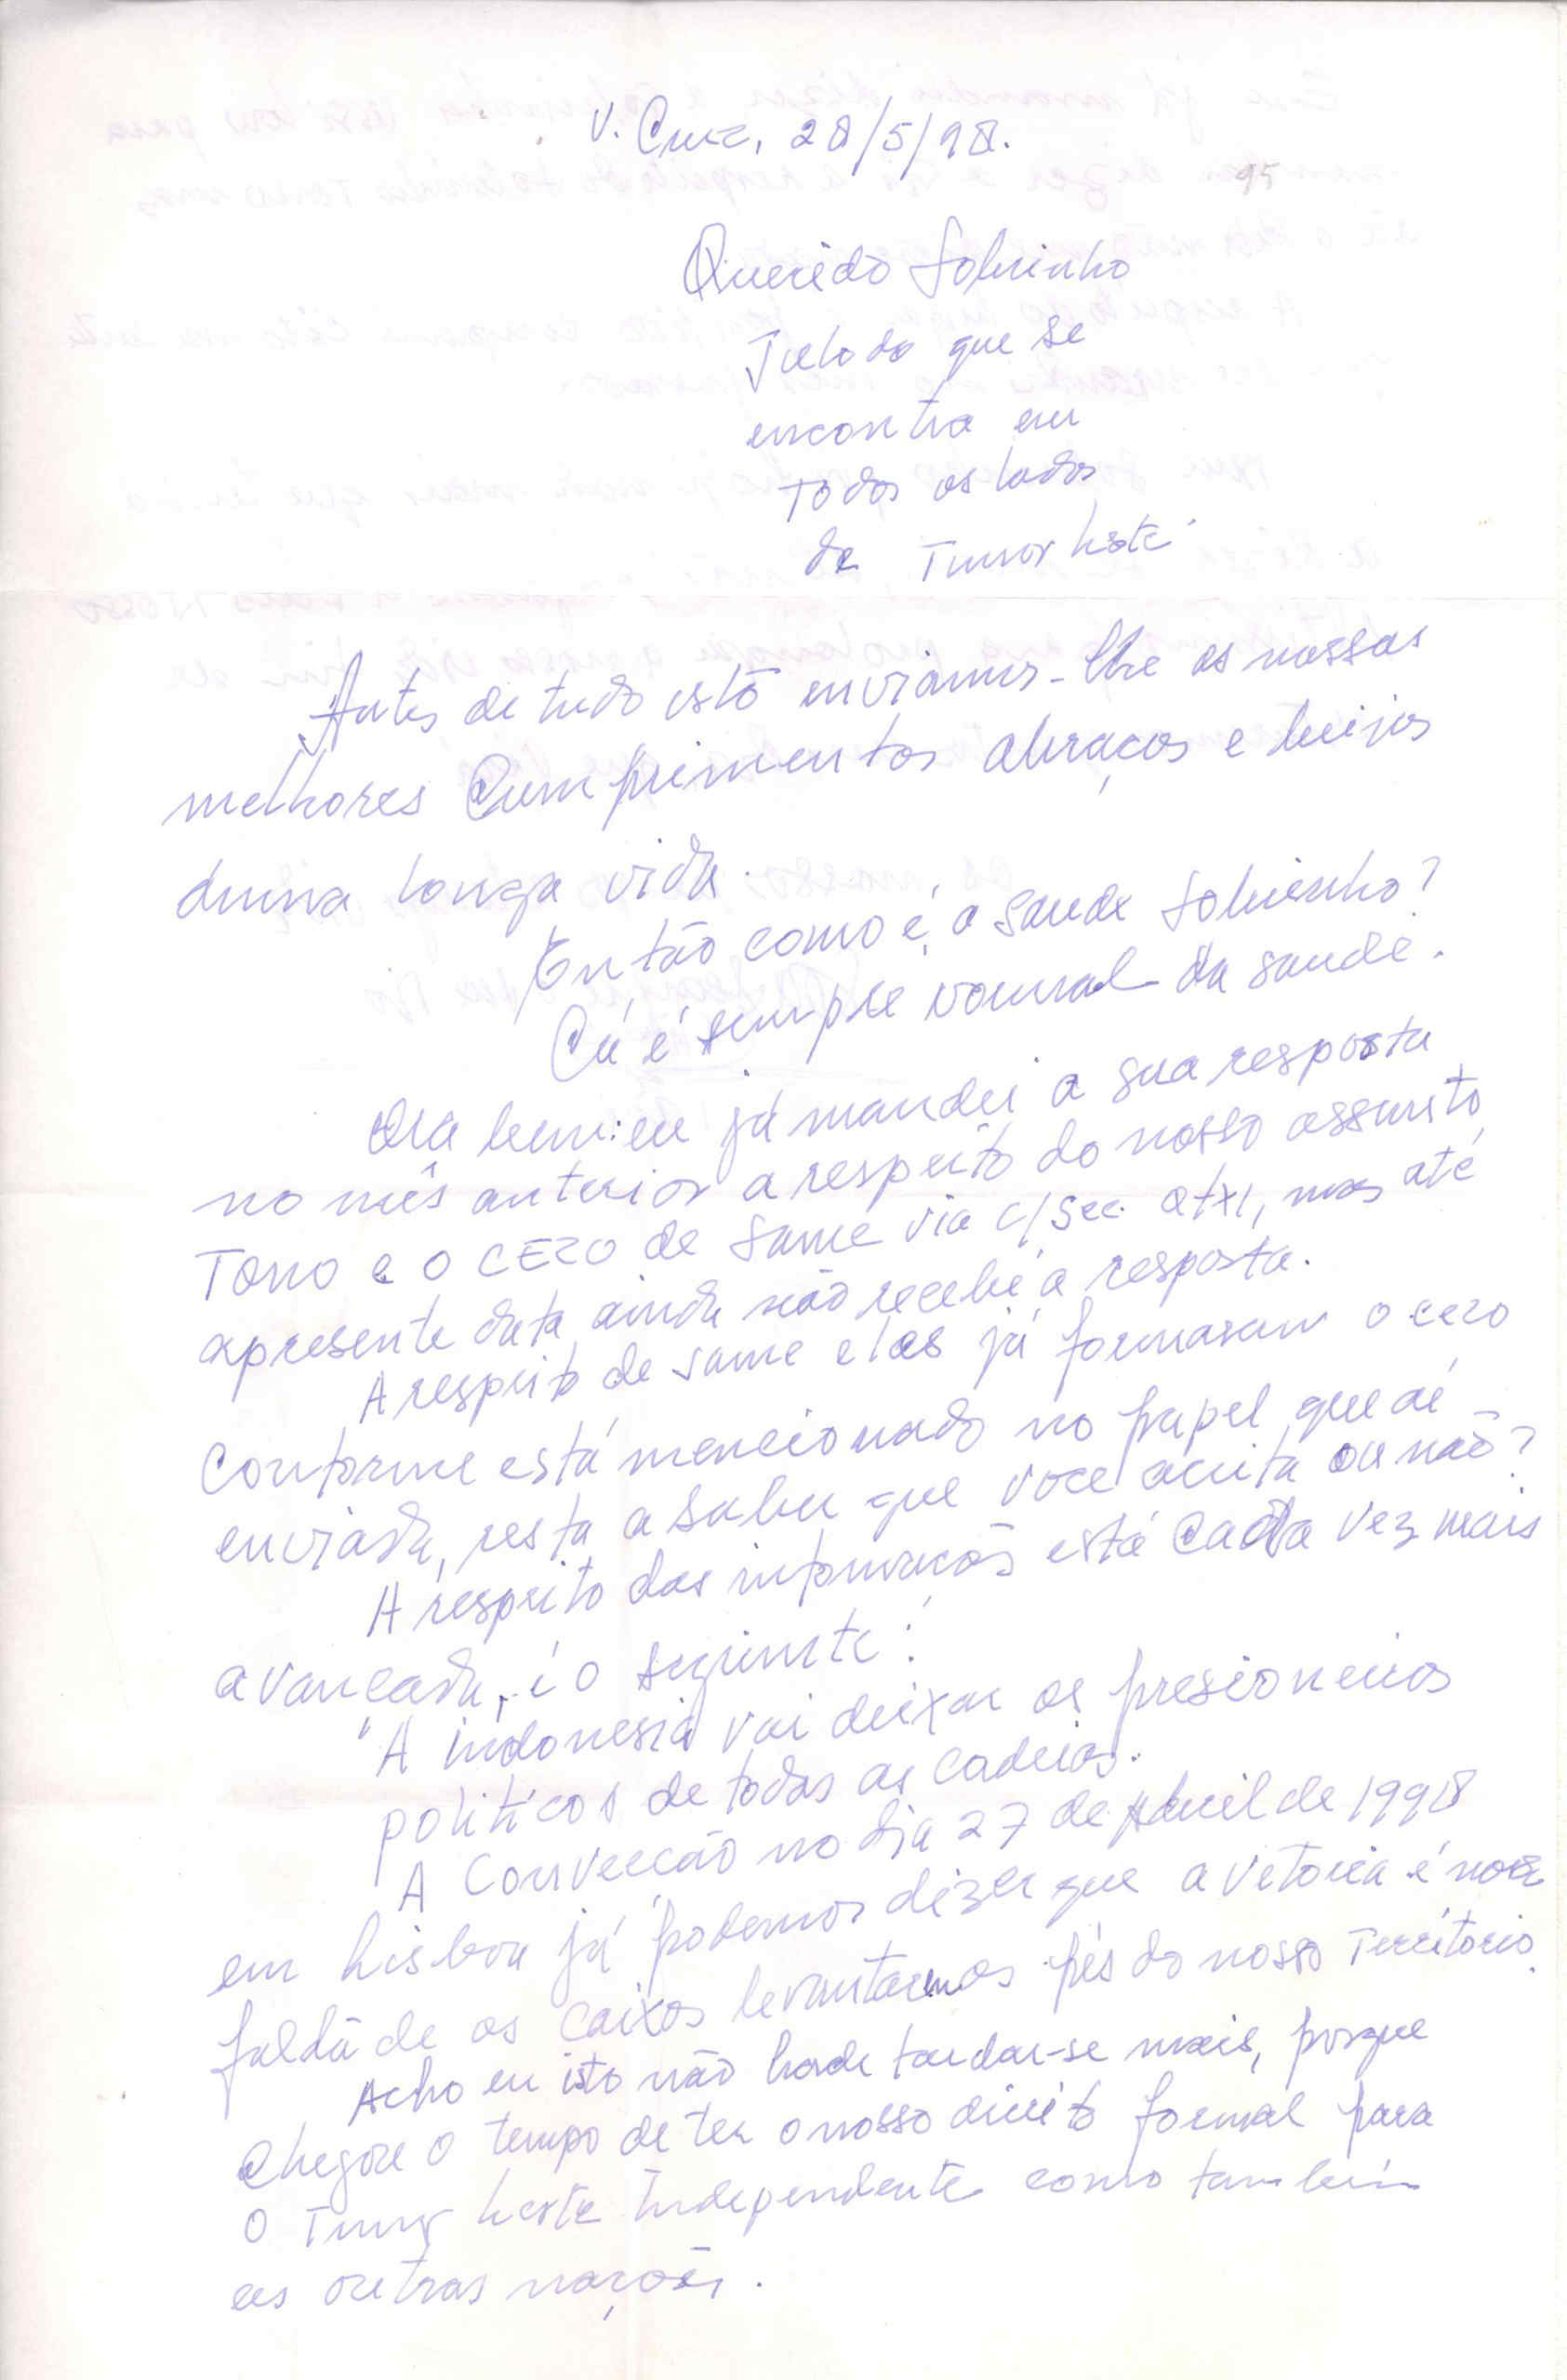 V. Cruz, 28/5/98.
95
Querido Sobrinho
que se
encontra em
Todos os lados
de Timor Leste
Antes de tudo isto enviamos-lhe as nossas
melhores Cumprimentos abraços e beijos
duma longa vida.
Então como é, a saude Sobrinho?
Cá é sempre normal da saude.
Ora bem: eu já mandei a sua resposta
no mês anterior a respeito do nosso assunto,
TONO e O CEZO de Same via c/Sec. mas até
apresente data ainda não recebi a resposta.
A respeito de Same elas já formaram o cezo
conforme está mencionado no papel que aí
enviada, resta a saber que voce aceita ou não?
A respeito das informacões está cada vez mais
avancada, é o seguinte:
"A indonesia vai deixar os presioneiros
politicos de todas as cadeias.
A Convecção no dia 27 de Abril de 1998
em Lisboa já podemos dizer que a vetoria é nossa
falta de os caixos levantarem os pés do nosso Território.
Acho eu isto não hade tardar-se mais, porque
chegou o tempo de ter o nosso direito formal para
O Timor Leste Independente como tambem
as outras nações.